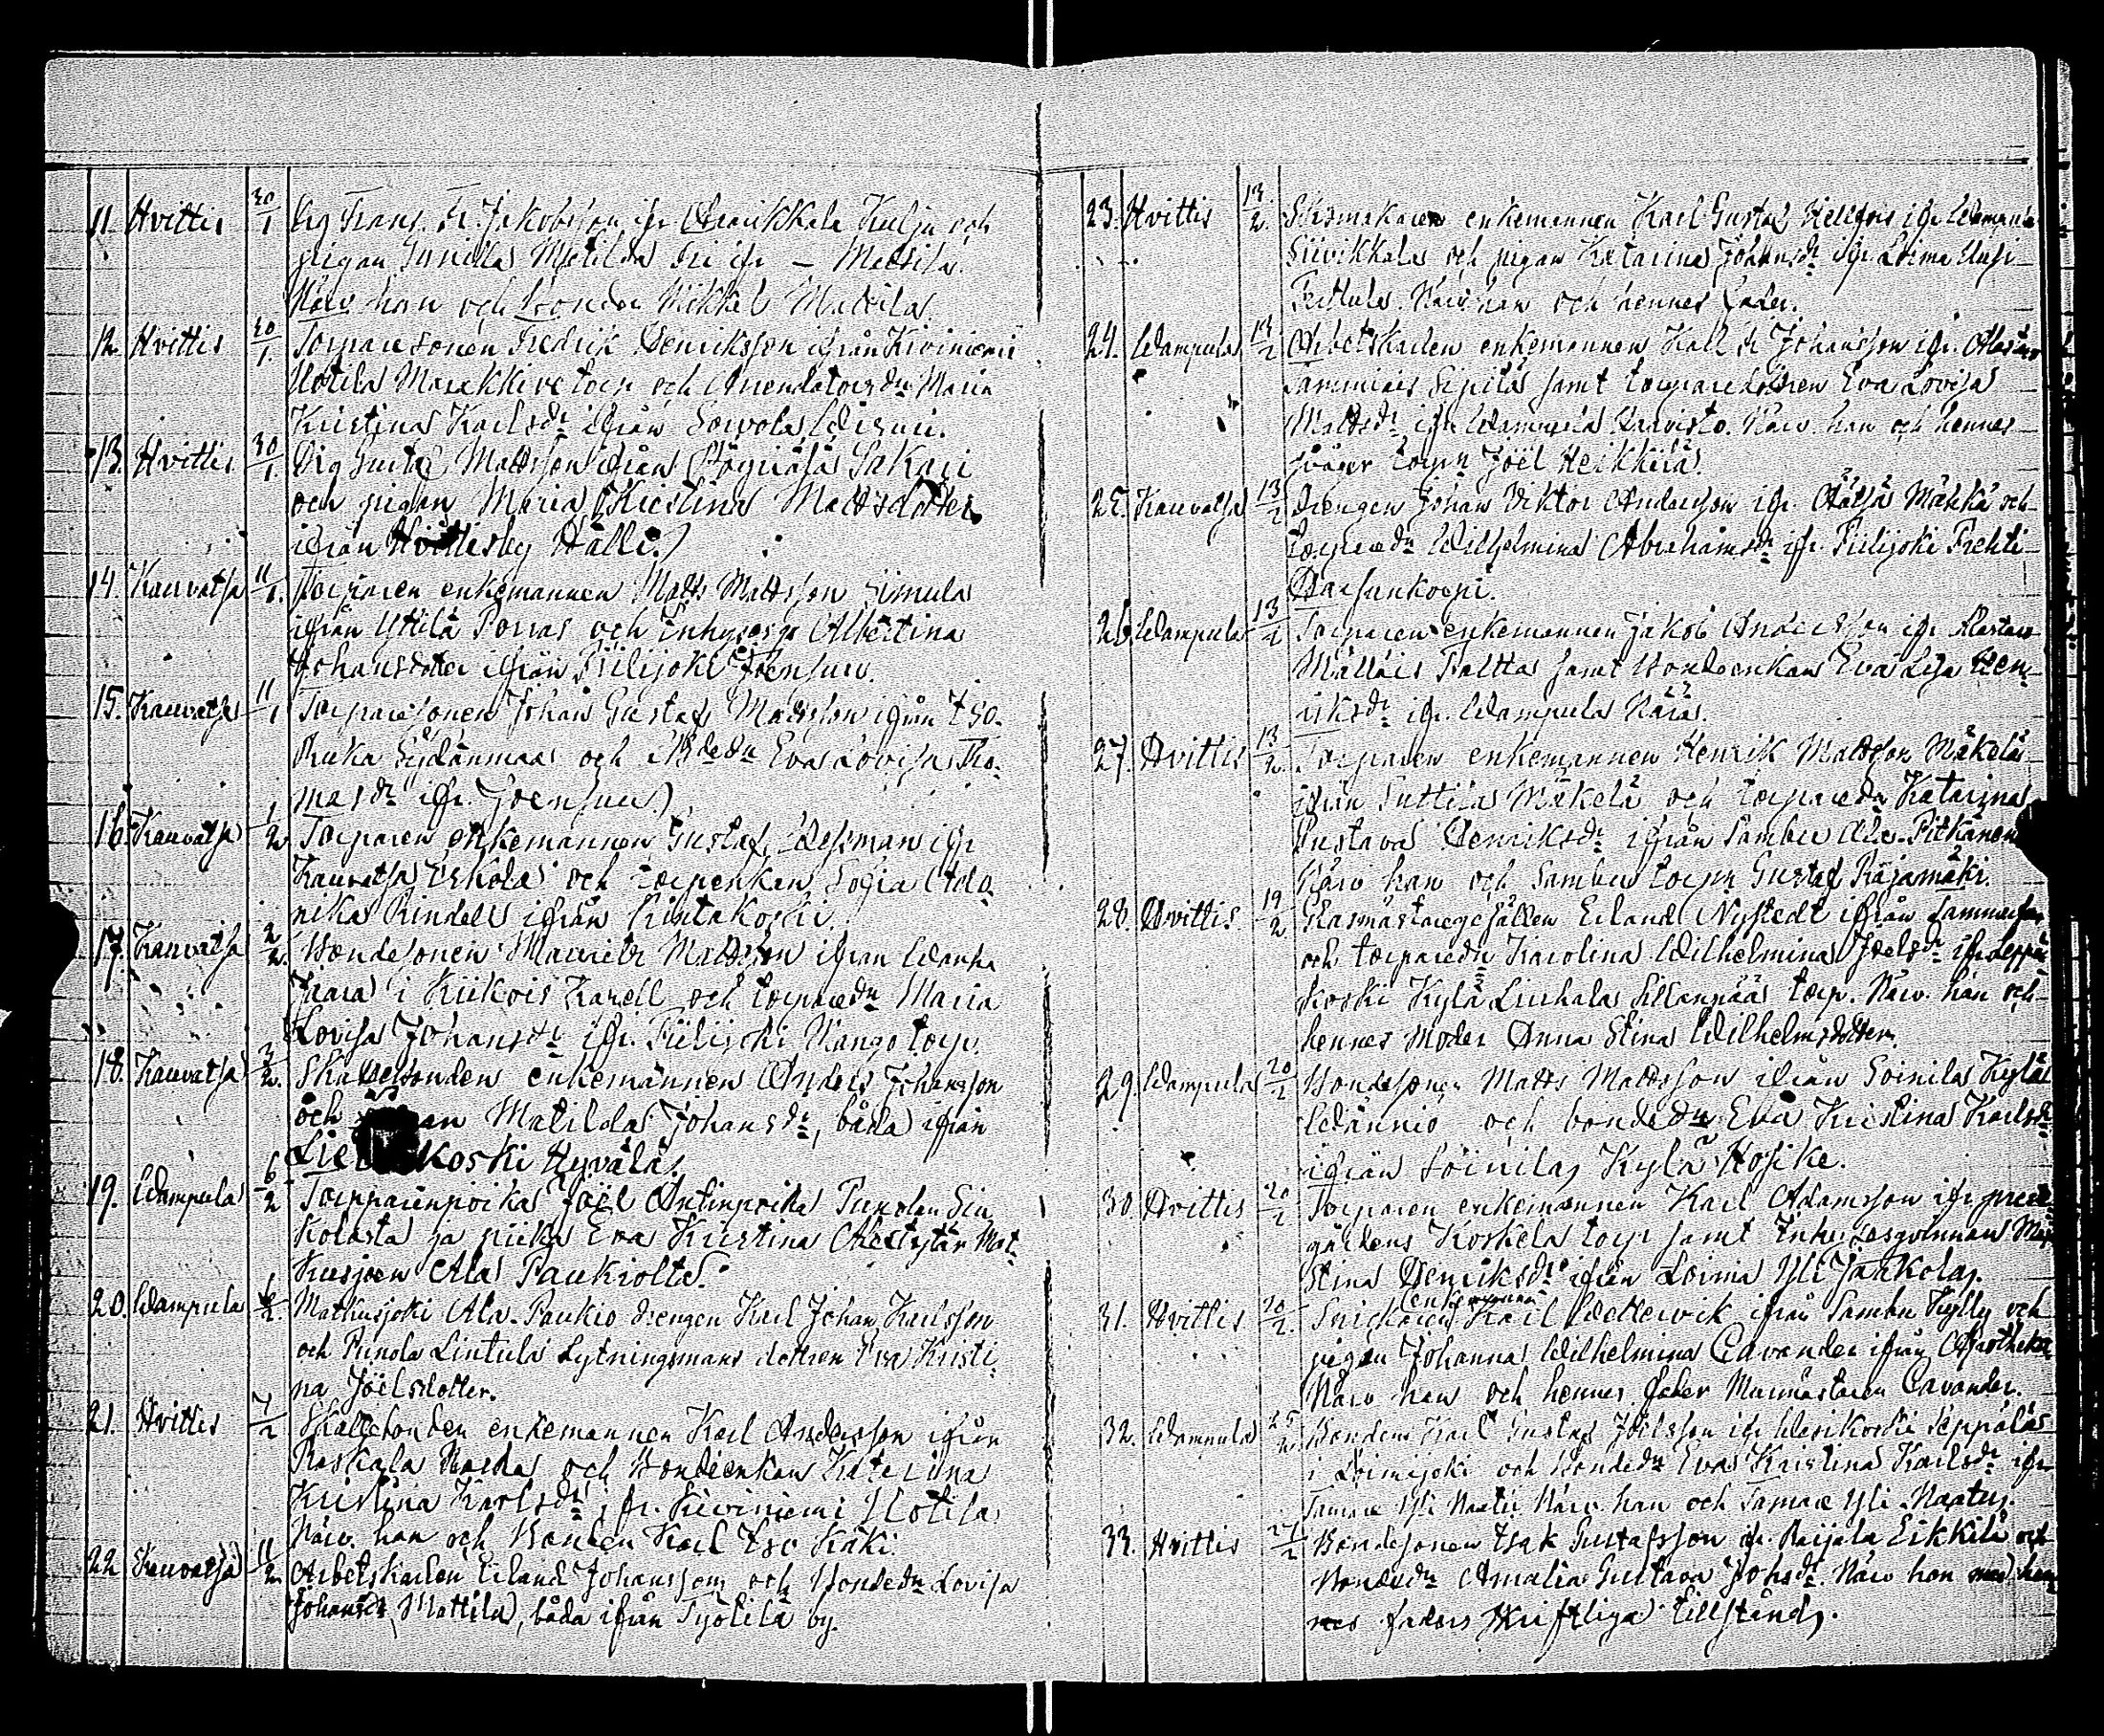 11. Hvittis 30/1 Drg Frans. Fr. Jakobsson ifr. Kulju och
pigan Gunilla Matilda ifr – Mattila.
Närv. han och bonden Mikkel Mattila.
12. Hvittis 30/1. Torparesonen Fredrik Henriksson ifrån Kiviniemi
Uotila torp och Maria
Kristina Karlsdr ifrån Sorvola
13. Hvittis 30/1. Drg Gustaf Mattsson ifrån Sakari
och pigan Maria Kristina Mattsdotter
ifrån Hvittisby Hälli.
14. Kauvatsa 11/1. Torparen enkemannen Matts Mattsson Simula
ifrån Yttilä Porras och Albertina
Johansdotter ifrån Piilijoki Joensuu.
15. Kauvatsa 11/1 Torparesonen Johan Gustaf Mattsson ifrån Iso-
Puka Sydänmaa och Eva Lovisa Tho-
masdr ifr. Joensuu
16. Kauvatsa 1/2 Torparen enkemannen Gustaf ifr
Kauvatsa Eskola och torpenkan Sofia
nika Rindell ifrån Kintakoski.
17. Kauvatsa 2/2. Bondesonen Mauritz Mattsson ifrån Wanha
Jaara i Kiikois Kapell och torparedr Maria
Lovisa Johansdr ifr. Piilijoki Kango torp.
18. Kauvatsa 3/2. Skattebonden enkemannen Anders Johansson
och Matilda Johansdr, båda ifrån
koski Hyvälä.
19. Wampula 6/2 Torpparinpoika Joël Antinpoika Punolan
kolasta ja piika Eva Kristina Mat-
kusjoen Ala Paukiolta.
20. Wampula 6/2. Matkusjoki Ala-Paukio drengen Karl Johan Karlsson
och Punola Lintula Lytningsmans dottren Eva Kristi-
na Joëlsdotter.
21. Hvittis 7/2 Skattebonden enkemannen Karl Andersson ifrån
Raskala och Bondeenkan Katarina
Kristina Karlsdr ifr. Kiviniemi Uotila
Närv. han och Bonden Karl Iso Käki.
22 Kauvatsa 11/2 Arbetskarlen Erland Johansson och Bondedr Lovisa
Johansdr Mattila, båda ifrån Työlilä by.
23. Hvittis 13/2. Skomakaren enkemannen Karl Gustaf Hellfors ifr. Wampula
Siivikkala och pigan Katarina Johansdr ifr. Loima
Närv. han och hennes fader.
24. Wampula 13/2 Arbetskarlen enkemannen Karl Johansson ifr. Alastaro
Tammiais Sipilä samt torparedottren Eva Lovisa
Mattsdr ifr. Wampula Närv. han och hennes
svåger torpn Joël Heikkilä.
25. Kauvatsa 13/2 Drengen Johan Viktor Andersson ifr. Äätsä Mäkkä och
torparedr Wilhelmina Abrahamsdr ifr. Piilijoki Prehti-
26. Wampula 13/2 Torparen enkemannen Jakob Andersson ifr. Alastaro
Mälläis Paltta samt Bondeenkan Eva Lisa Hen-
riksdr ifr. Wampula Näräs.
27. Hvittis 13/2. Torparen enkemannen Henrik Mattsson Mäkelä
ifrån Suttila Mäkelä och torparedr Katarina
Gustava Henriksdr ifrån Sambu Ala-Pitkänen
Närv han och Sambu torpn Gustaf Rajamäki.
28. Hvittis 19/2 Glasmästaregesällen Erland Nystedt ifrån
och torparedr Karolina Wilhelmina Joelsdr ifr. Leppä-
koski Kylä Liuhala Sillanpää torp. Närv. han och
hennes moder Anna Stina Wilhelmsdotter.
29. Wampula 20/2 Bondesonen Matts Mattsson ifrån Soinila Kylä
Wännio och bondedr Eva Kristina Karlsdr
ifrån Soinila Kylä Hosike.
30. Hvittis 20/2 Torparen enkemannen Karl Adamsson ifr. prest-
gårdens Koskela torp samt Inhysesqvinnan Maj
Stina Henriksdr ifrån Loima Yli Jaakola.
31. Hvittis 20/2. Snickaren enkemannen Karl Wettervik ifrån Sambu Kylly och
pigan Johanna Wilhelmina Cavander ifrån
Närv han och hennes fader Murmästaren Cavander.
32. Wampula 25/2 Bonden Karl Gustaf Joëlsson ifr. Wesikoski Seppälä
i Loimijoki och Bondedr Eva Kristina Karlsdr ifr
Tamare Yli Naatu. Närv han och Tamare Yli Naatu.
33. Hvittis 27/2 Bondesonen Isak Gustafsson ifr. Raijala Eikkilä och
Bondedr Amalia Gustava Johsdr. Närv han med hen-
nes faders skriftliga tillstånd.